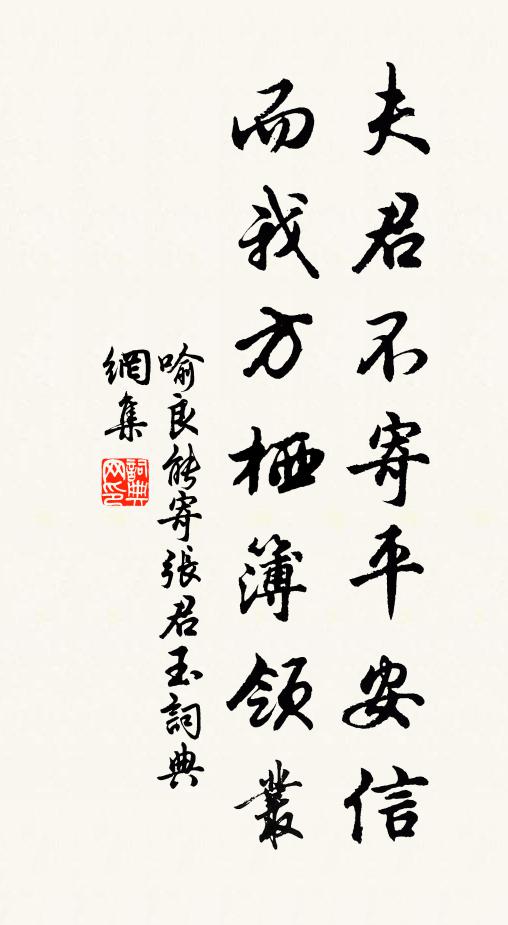 夫君不寄平安信
而我方栖簿領叢
喻良能寄張君玉詞典
網集
詞典网印